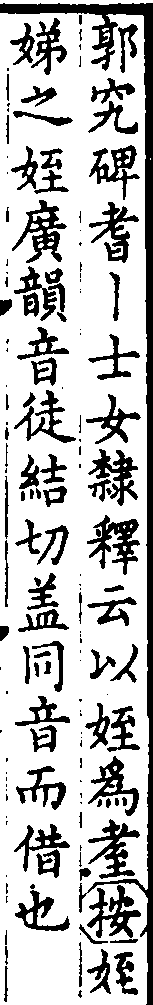 郭究碑耆丨士女隸釋云以姪爲耋按姪
娣之姪廣韻音徒結切盖同音而借也